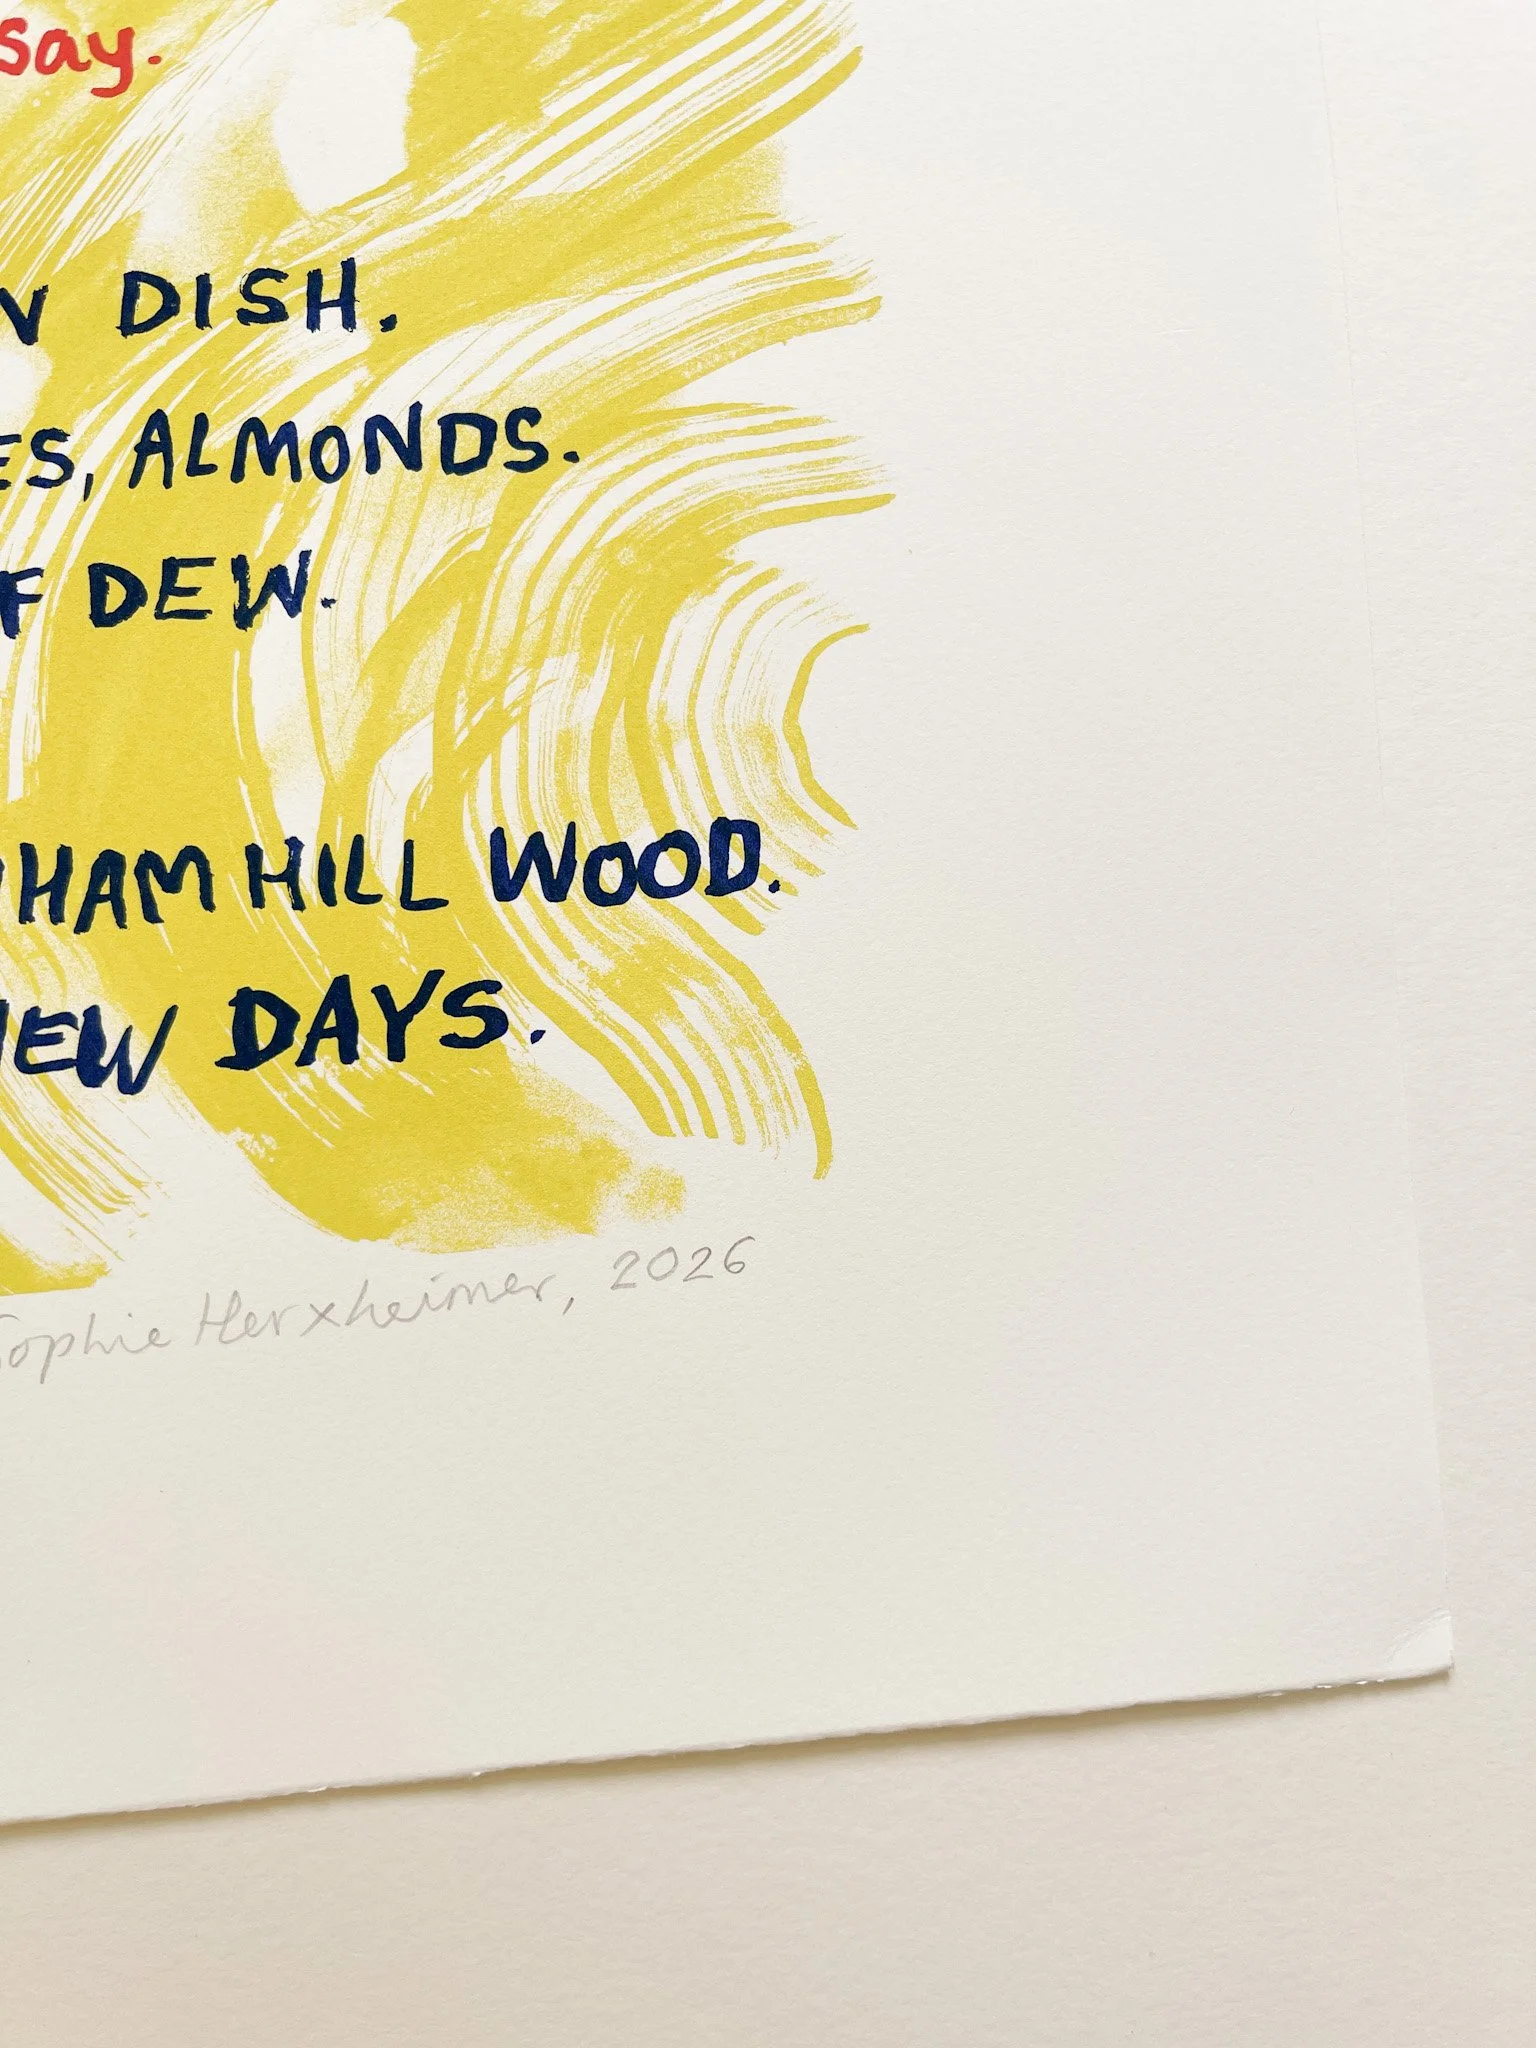 say.
N DISH.
ES, ALMONDS.
F DEW.
HAM HILL WOOD.
NEW DAYS.
Sophie Herxheimer, 2026